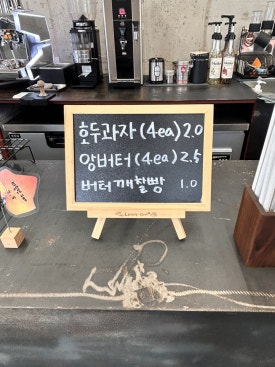 호두과자 (4ea) 2.0
앙버터 (4ea) 2.5
버터깨찰빵 1.0